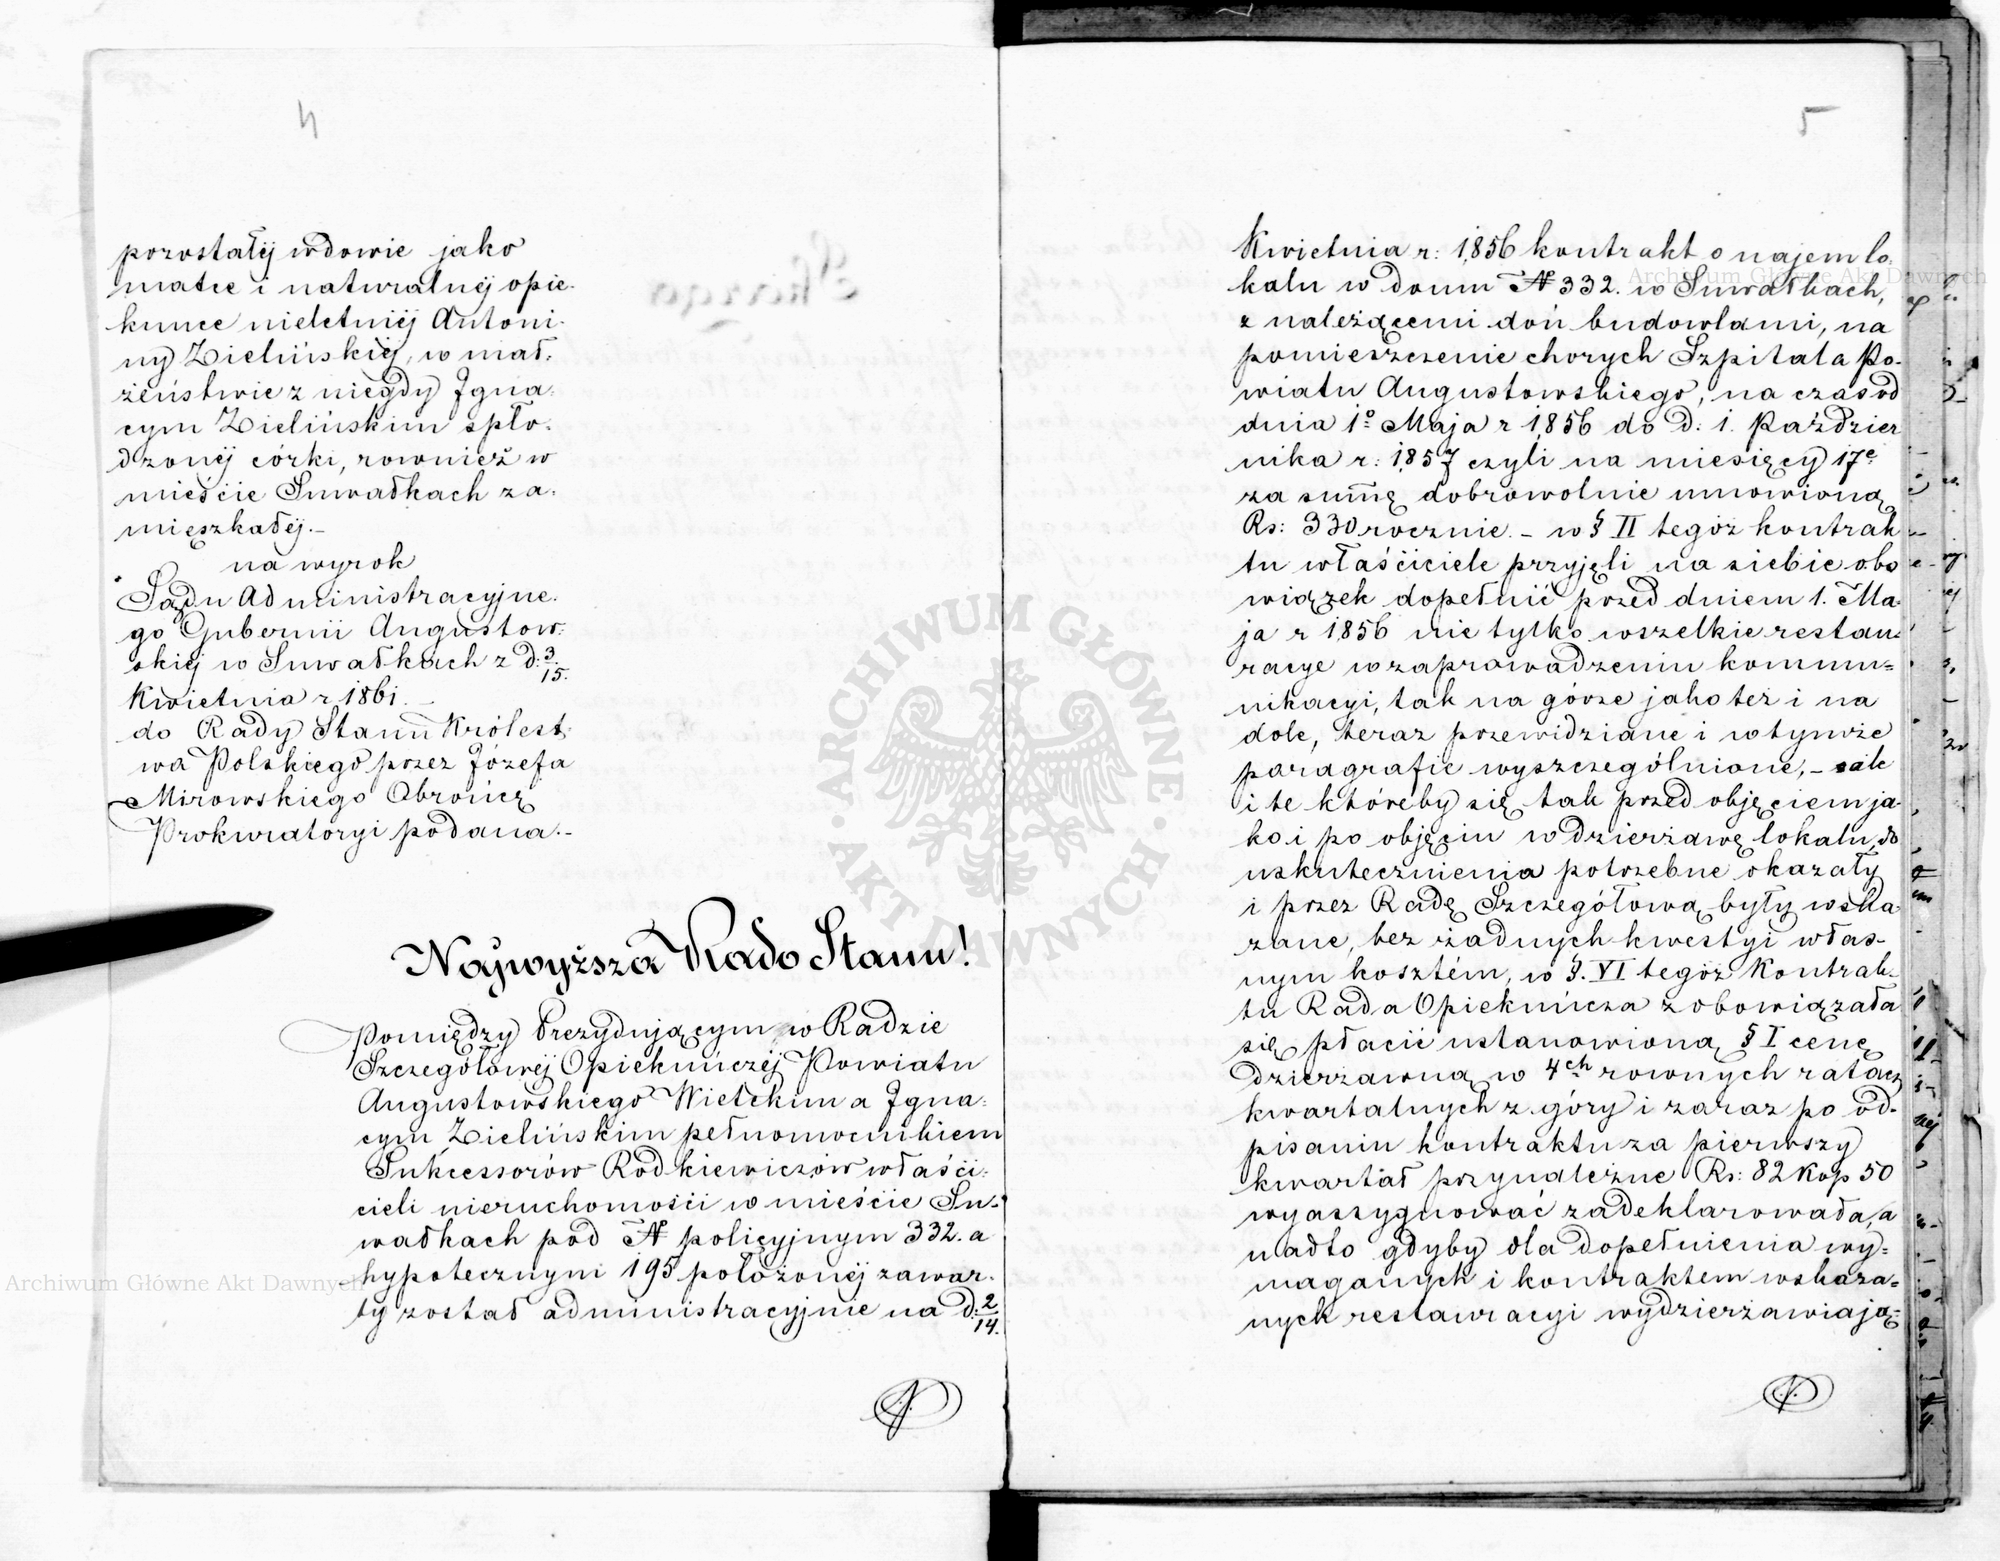 4
pozostałéj wdowie jako
matce i naturalnéj opie-
kunce nieletniéj Antoni-
ny Zielińskiéj, w mał-
żeństwie z niegdy Igna-
cym Zielińskim spło-
dzonéj córki, rownież w
mieście Suwałkach za-
mięszkałéj.-
na wyrok
Sądu Administracyjne-
go Gubernii Augustow-
skiéj w Suwałkach z d: 3/15.
Kwietnia r 1861. -
do Rady Stanu Królest-
wa Polskiego przez Józefa
Mirowskiego Obrońcę
Prokuratoryi podana.-
Najwyższa Rado Stanu!
Pomiędzy Prezydującym w Radzie
Szczegółowéj Opiekuńczéj Powiatu
Augustowskiego Wielekim a Igna-
cym Zielińskim pełnomocnikiem
Sukcessorów Rodkiewiczów właści-
cieli nieruchomości w mieście Su-
wałkach pod № policyjnym 332. a
hypotecznym 195 położonéj zawar-
ty został administracyjnie na d: 2/14.
5
Kwietnia r: 1856 kontrakt o najem lo-
kalu w domu № 332. w Suwałkach,
z należącemi doń budowlami, na
pomieszczenie chorych Szpitala Po-
wiatu Augustowskiego, na czas od
dnia 1º Maja r 1856 do d: 1. Paździer
nika r: 1857 czyli na miesięcy 17e
za summę dobrowolnie umowioną
Rs: 330 rocznie. - w § II tegoż kontrak
tu właściciele przyjęli na siebie obo
wiązek dopełnić przed dniem 1. Ma-
ja r 1856 nie tylko wszelkie restau-
racye w zaprowadzeniu kommu=
nikacyi, tak na górze jako też i na
dole, teraz przewidziane i w tymże
paragrafie wyszczególnione, - ale
i te któreby się tak przed objęciem ja-
ko i po objęciu w dzierżawę lokalu, do
uskutecznienia potrzebne okazały
i przez Radę Szczegółową były wska
zane, bez żadnych kwestyi włas-
nym kosztém, w §. VI tegoż Kontrak-
tu Rada Opiekuńcza zobowiązała
się płacić ustanowioną § I cenę
dzierżawną w 4ch rownych ratach
kwartalnych z góry i zaraz po od-
pisaniu kontraktu za pierwszy
kwartał przynależne Rs: 82 Kop 50
wyassygnować zadeklarowała, a
nadto gdyby dla dopełnienia wy=
maganych i kontraktem wskaza=
nych restauracyi wydzierżawiają=
ARCHIWUM GŁÓWNE · AKT DAWNYCH ·
Archiwum Główne Akt Dawnych
Archiwum Główne Akt Dawnych